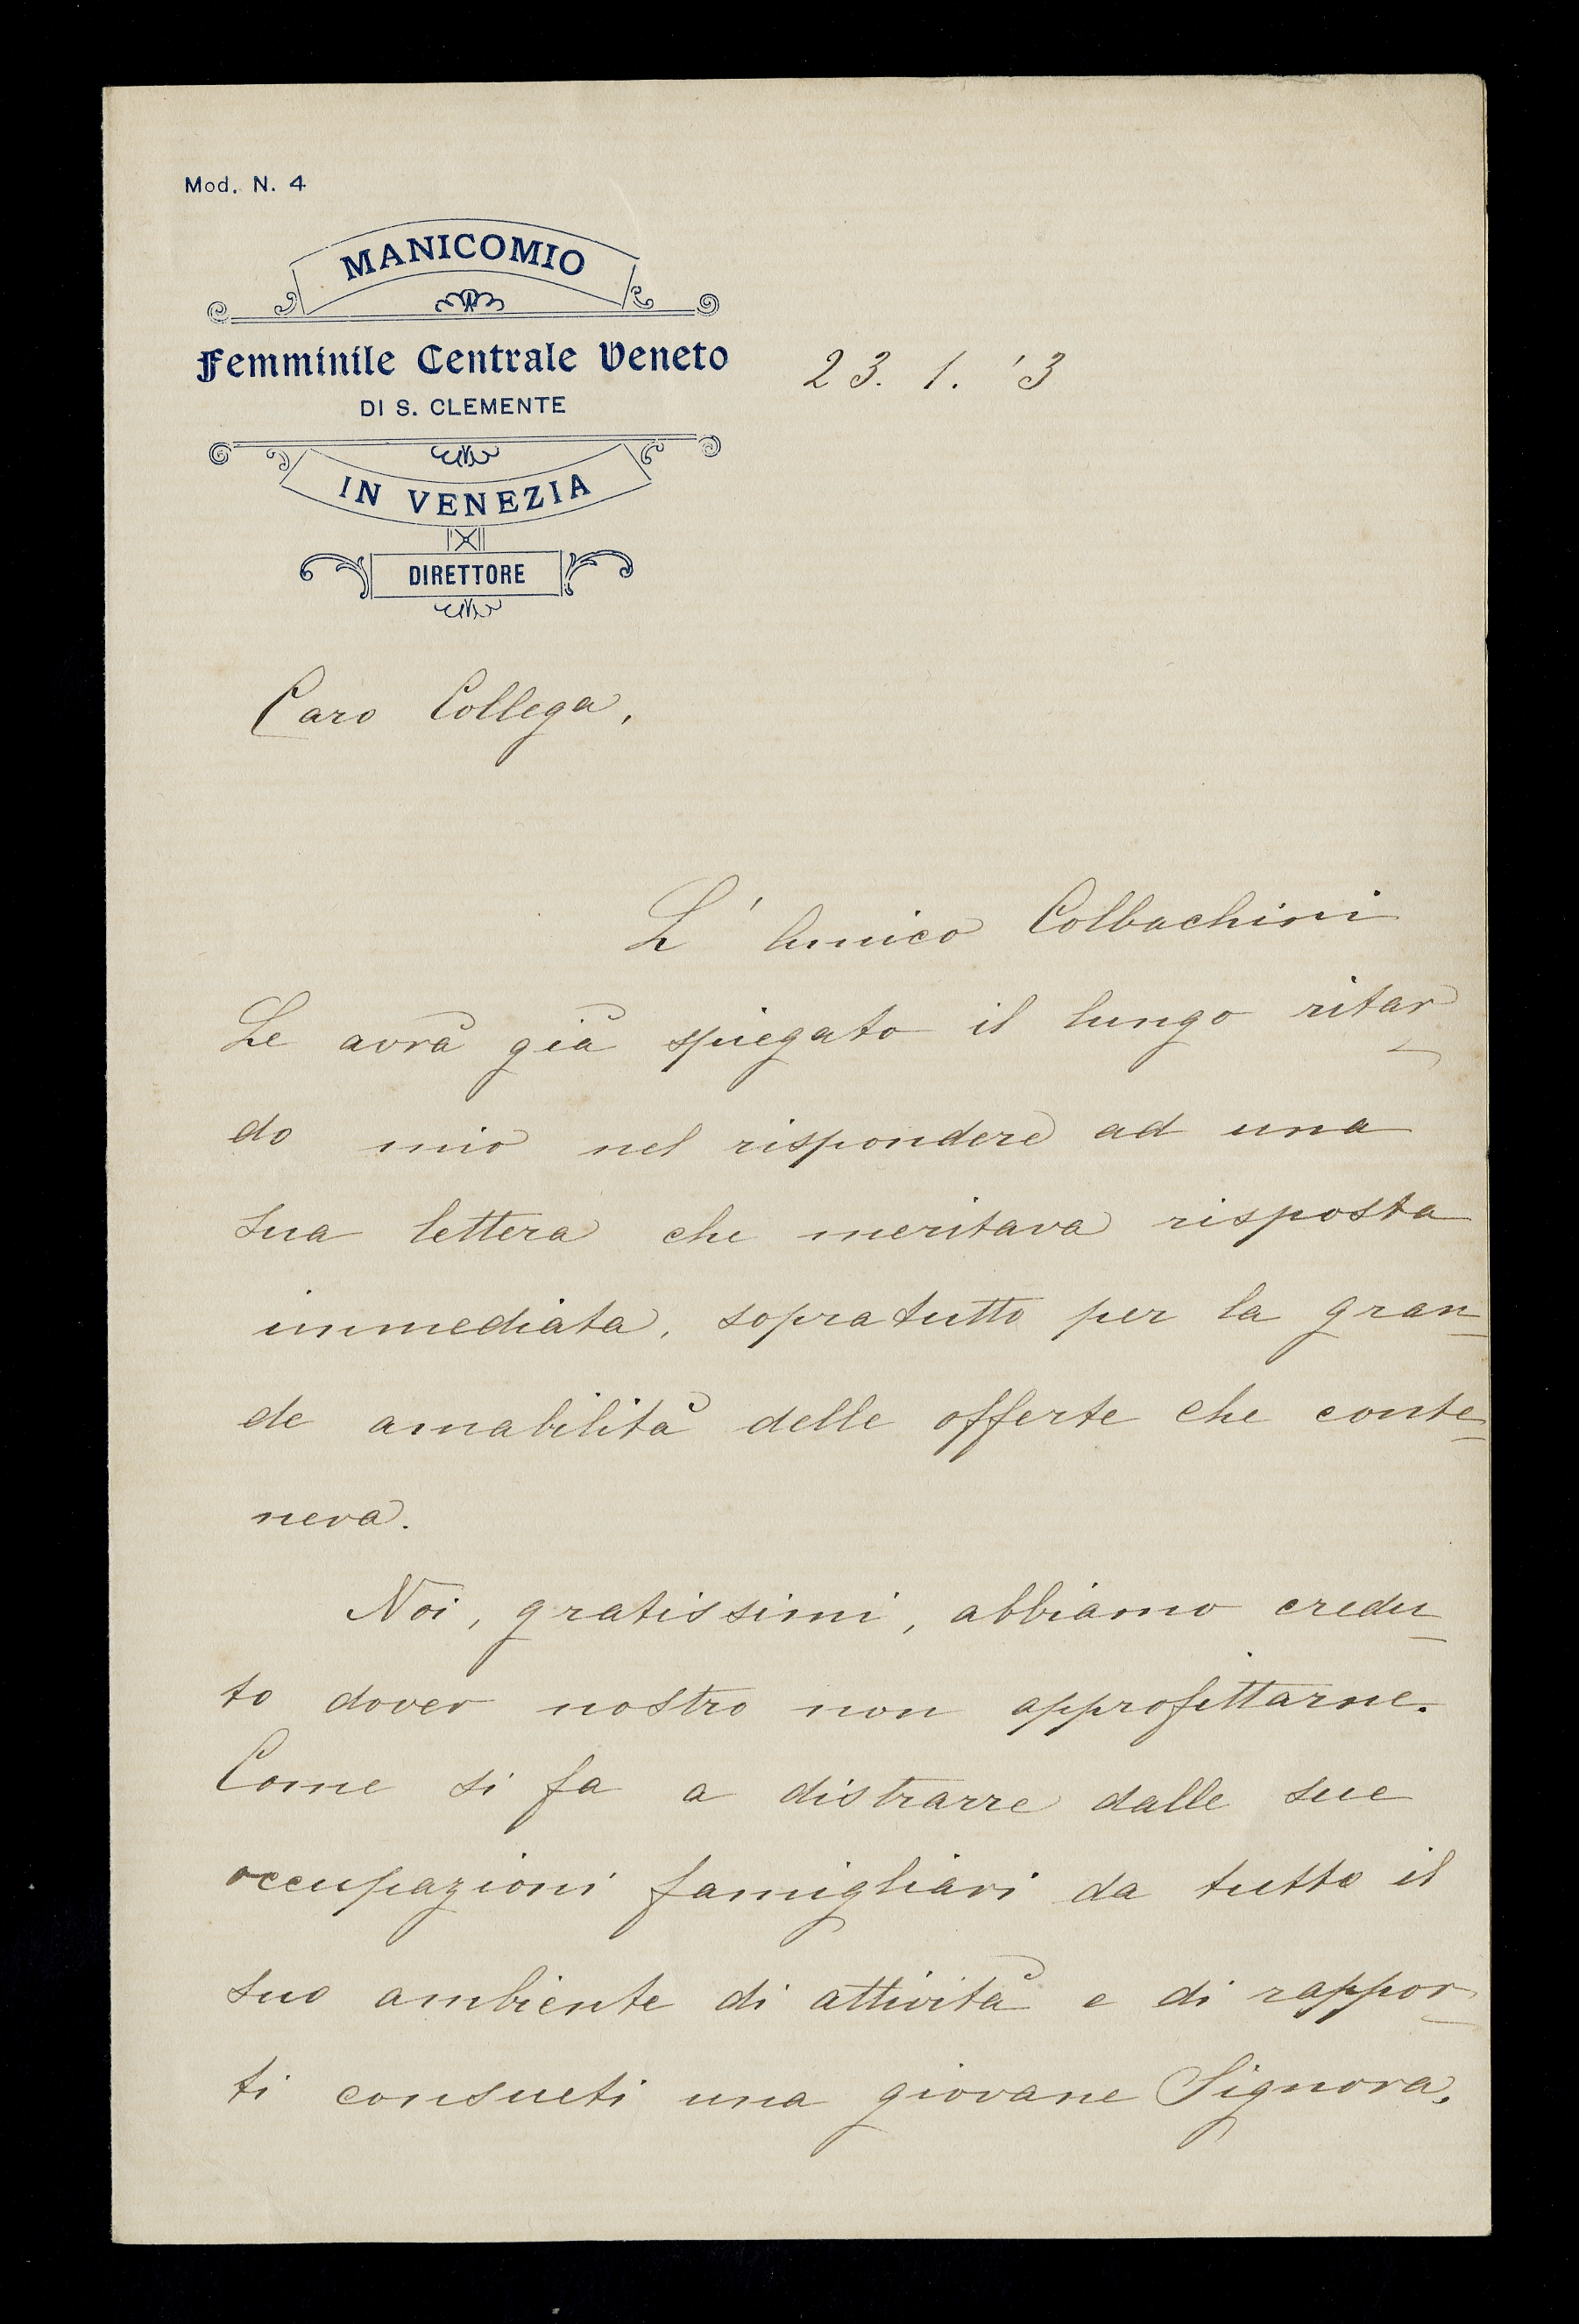 Mod. N. 4
MANICOMIO
Femminile Centrale Veneto
DI S. CLEMENTE
23. 1. '3
IN VENEZIA
DIRETTORE
Caro Collega,
L'Amico Colbachini
Le avrà già spiegato il lungo ritar
do mio nel rispondere ad una
sua lettera che meritava risposta
immediata, sopratutto per la gran
de amabilità delle offerte che conte
neva.
Noi, gratissimi, abbiamo credu
to dover nostro non approfittarne.
Come si fa a distrarre dalle sue
occupazioni famigliari da tutto il
suo ambiente di attività e di rappor
ti consueti una giovane Signora,